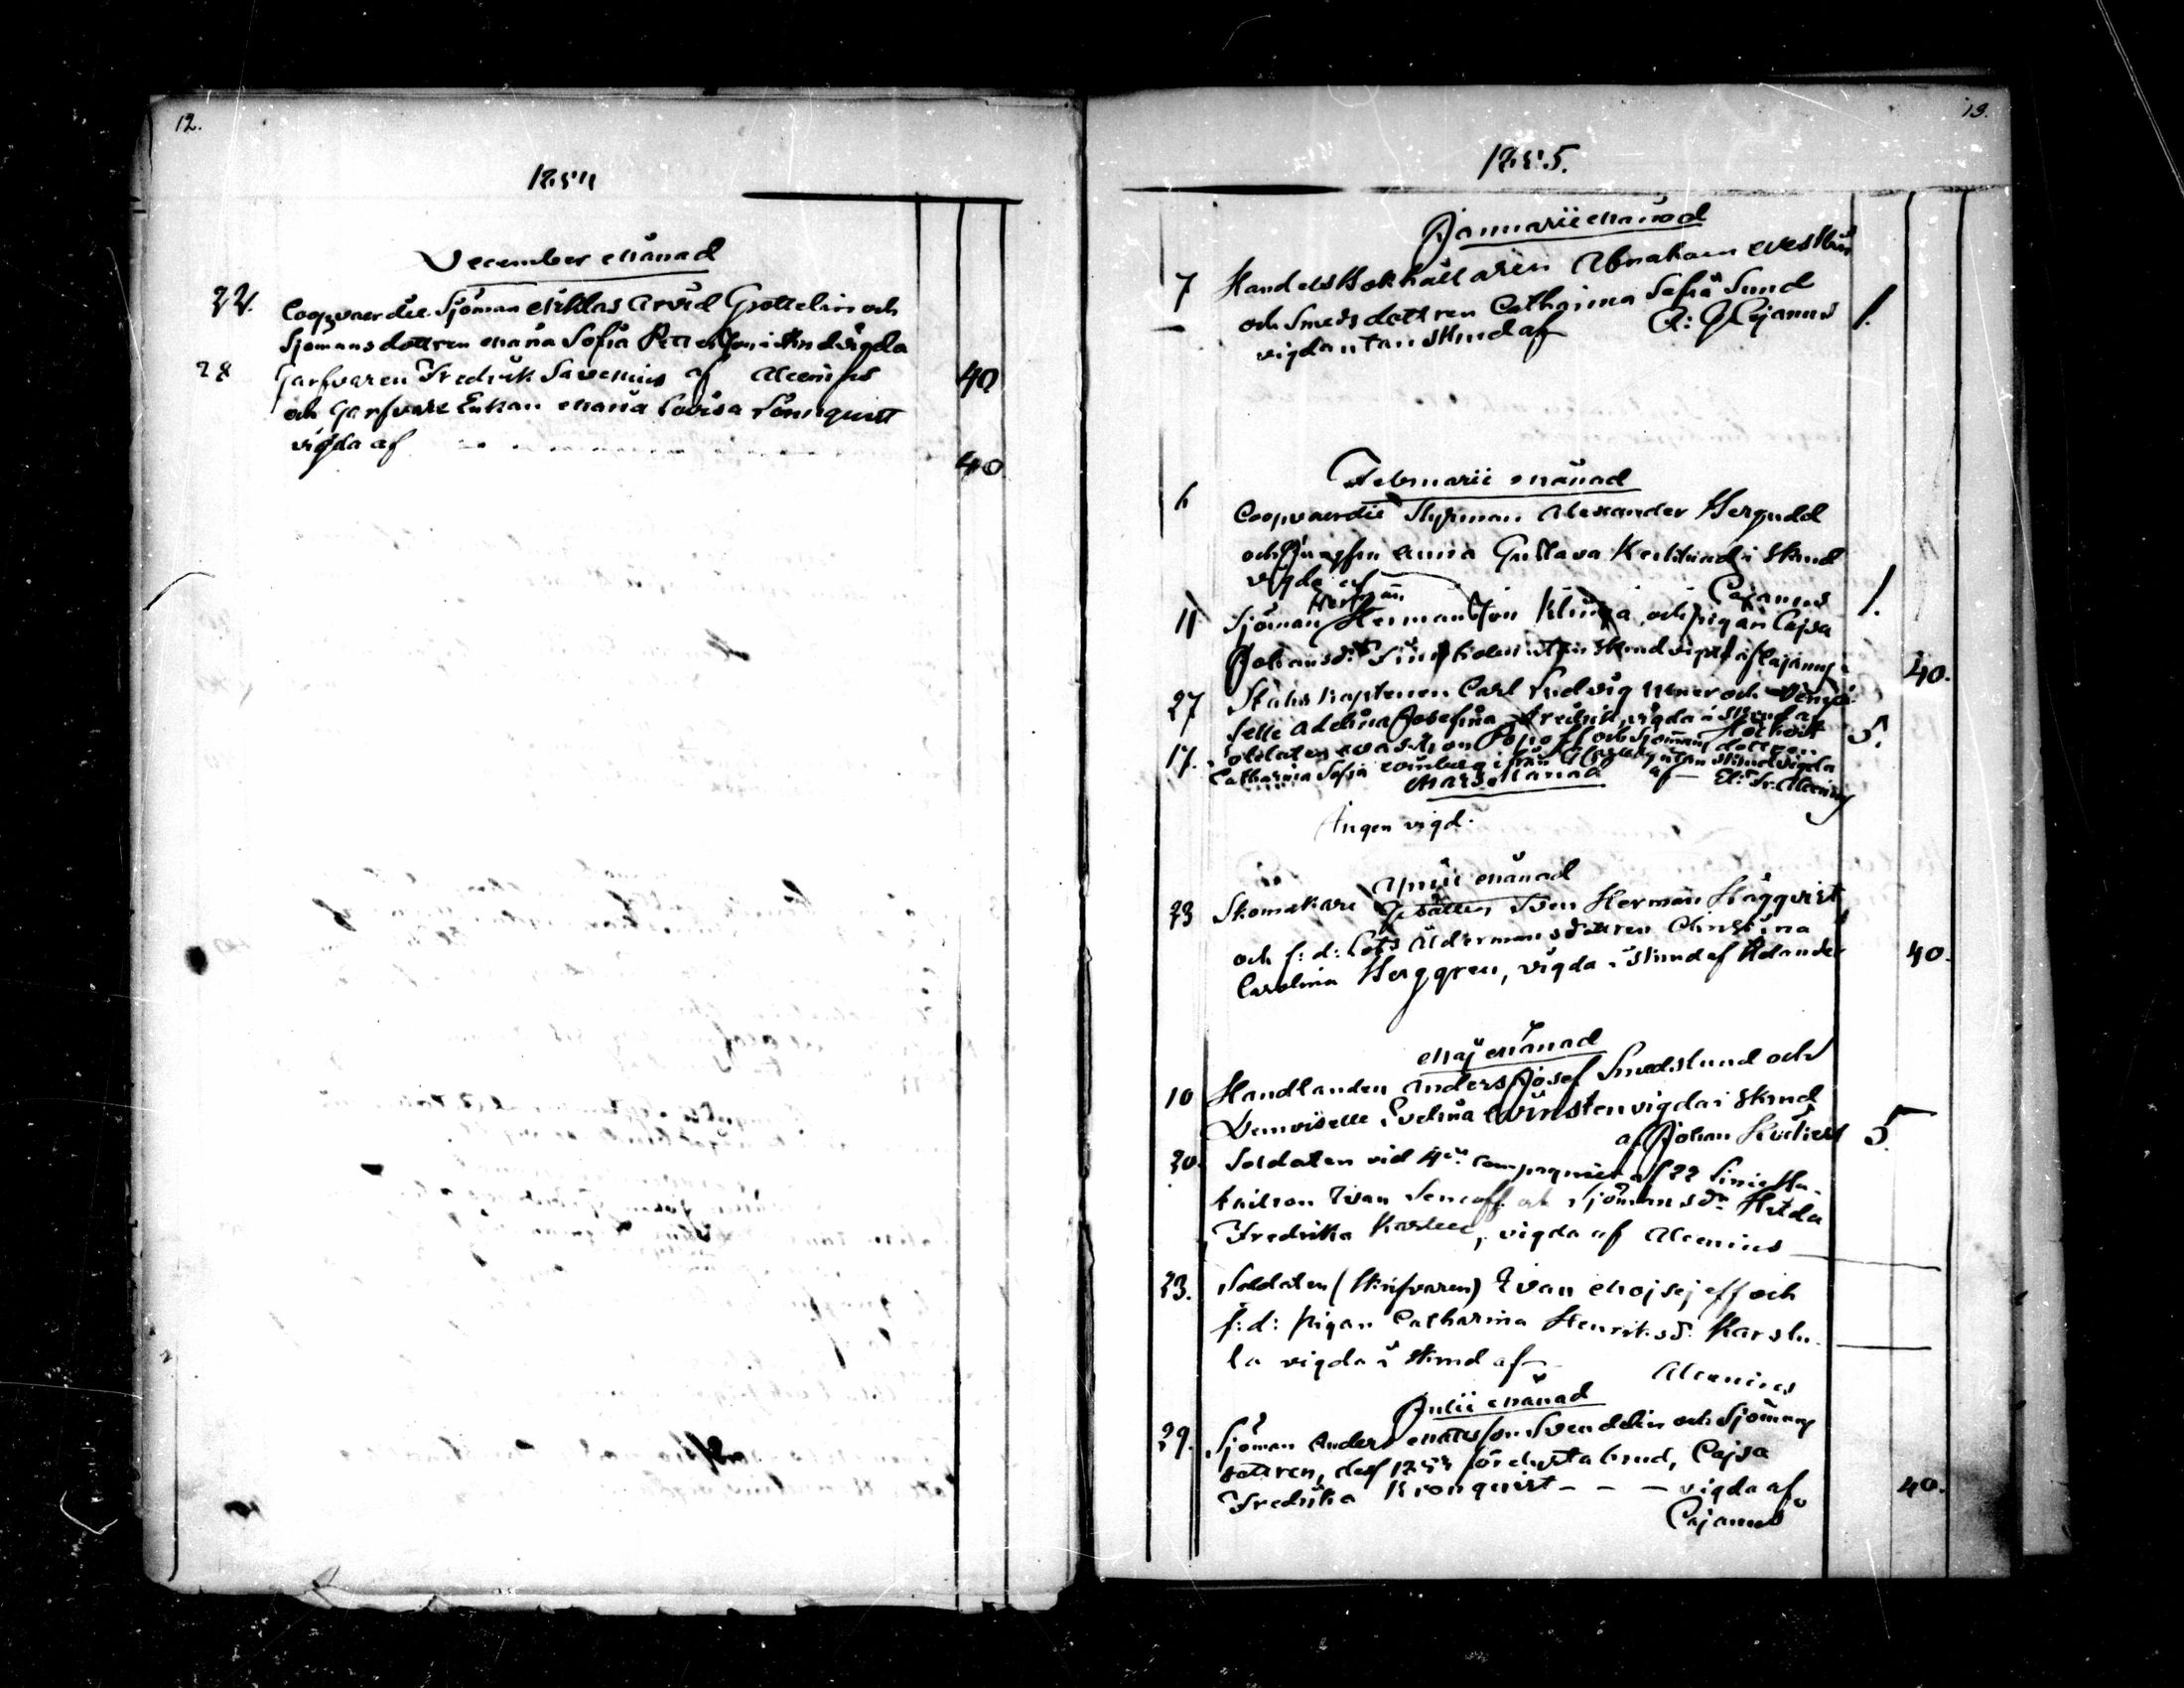 12.
1854
December Månad
22. Coopvaerdie Sjöman Niklas Arvid Grottelin och
Sjömansdottren Maria Sofia Petterson i Stnd vigda
28 Garfvaren Fredrik Savenius af Alcenius 40
och Garfvare Enkan Maria Lovisa Lönnqvist
vigda af 40
13.
1855.
Januarii Månad
7 Handelsbokhållaren Abraham Westlin
och Smedsdottren Catharina Sofia Sund
vigda utan Stnd af A: G Cajanus 1.
Februarii Månad
6 Coopvaerdie Styrman Alexander Bergudd
och Jungfru Anna Gustava Kecklund i Stnd
vigda af Cajanus 1.
Herman
11 Sjöman Hermansson Klinga och pigan Cajsa
Johansd:r utan Stnd vigd af Cajanus 40.
27 Stabskaptenen Carl Ludvig och Demoi-
selle Adelina Josefina vigda i Stnd af 5.
17. Soldaten Popoff och Sjömans dottren
Catharina Sofia ifrån utan Stnd vigda
Mars Månad af El: Fr: Alcenius
Ingen vigd.
April Månad
23 Skomakare Gesällen Sven Herman Häggqvist
och f: d: Lots Åldermansdottren Christina
Carolina Berggren, vigda i Stnd af Holander 40.
Maj Månad
10 Handlanden Anders Josef Smedslund och
Demoiselle Evelina Winsten vigda i Stnd
af Johan 5.
20. Soldaten vid 4:de Compagniet af 22 Linie Ba-
tailson Ivan Sencoff och Sjömansd:r Hilda
Fredrika, vigda af Alcenius
23. Soldaten (Skrifvaren) Ivan Mojsejeff och
f: d: pigan Catharina Henriksd:r Karslu-
la vigda i Stnd af
Alcenius
Julii Månad
29. Sjöman Anders Mattsson Svendelin och Sjömans
dottren, dess förelysta brud, Cajsa
Fredrika Kronqvist - - - vigda af 40.
Cajanus